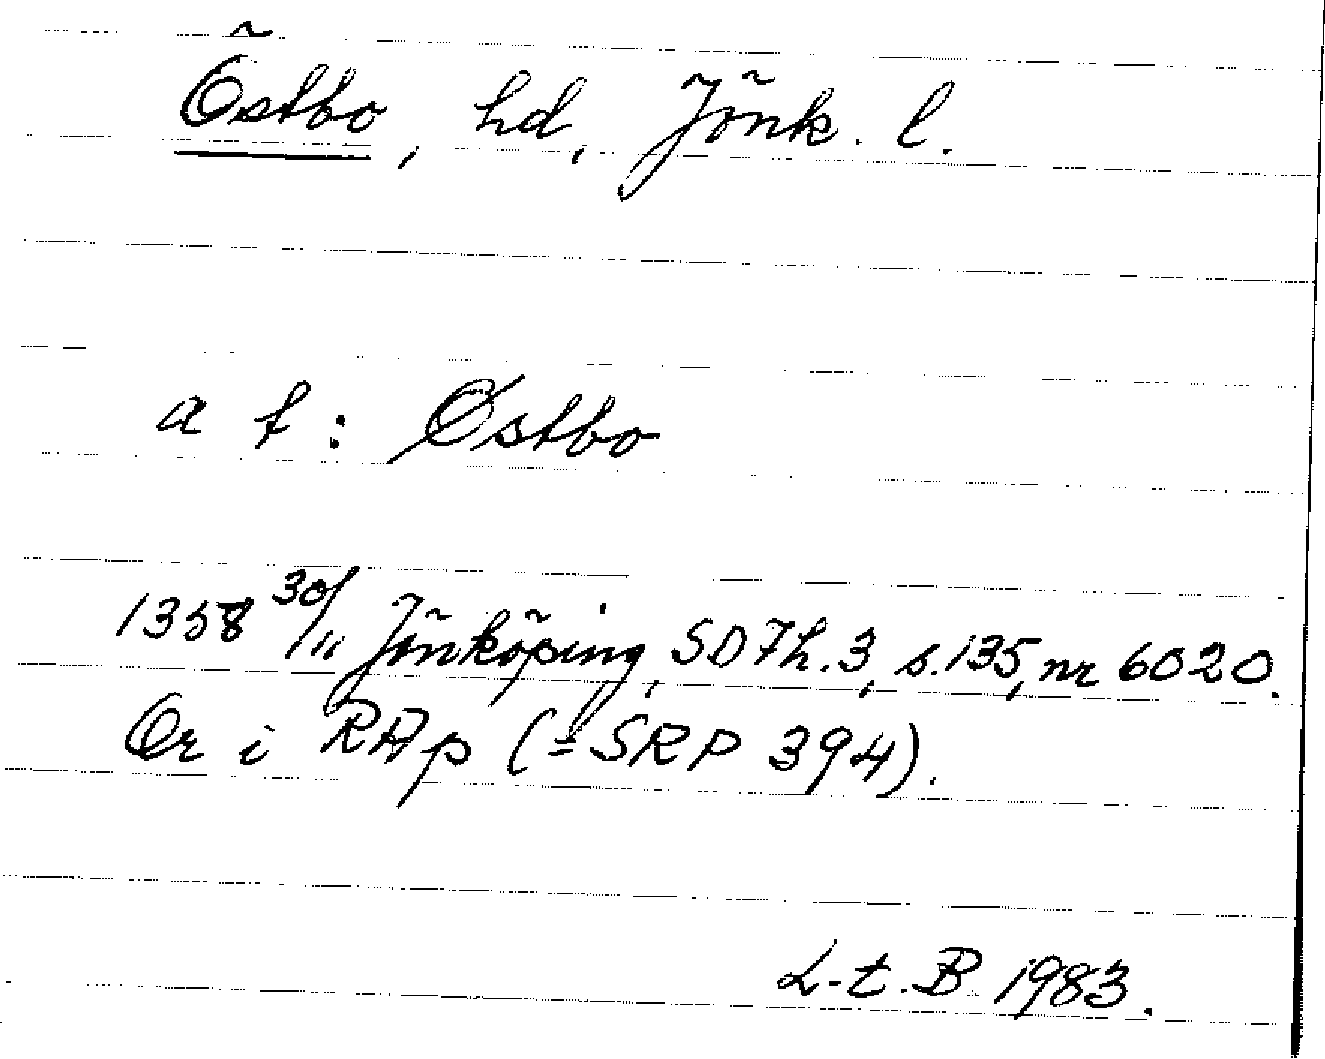 Östbo, hd, Jönk. l.
a f: Østbo
1358 30/11 Jönköping, SD 7 h. 3, s. 135, nr 6020.
Or i RAp (=SRP 394).
L-t. B 1983.